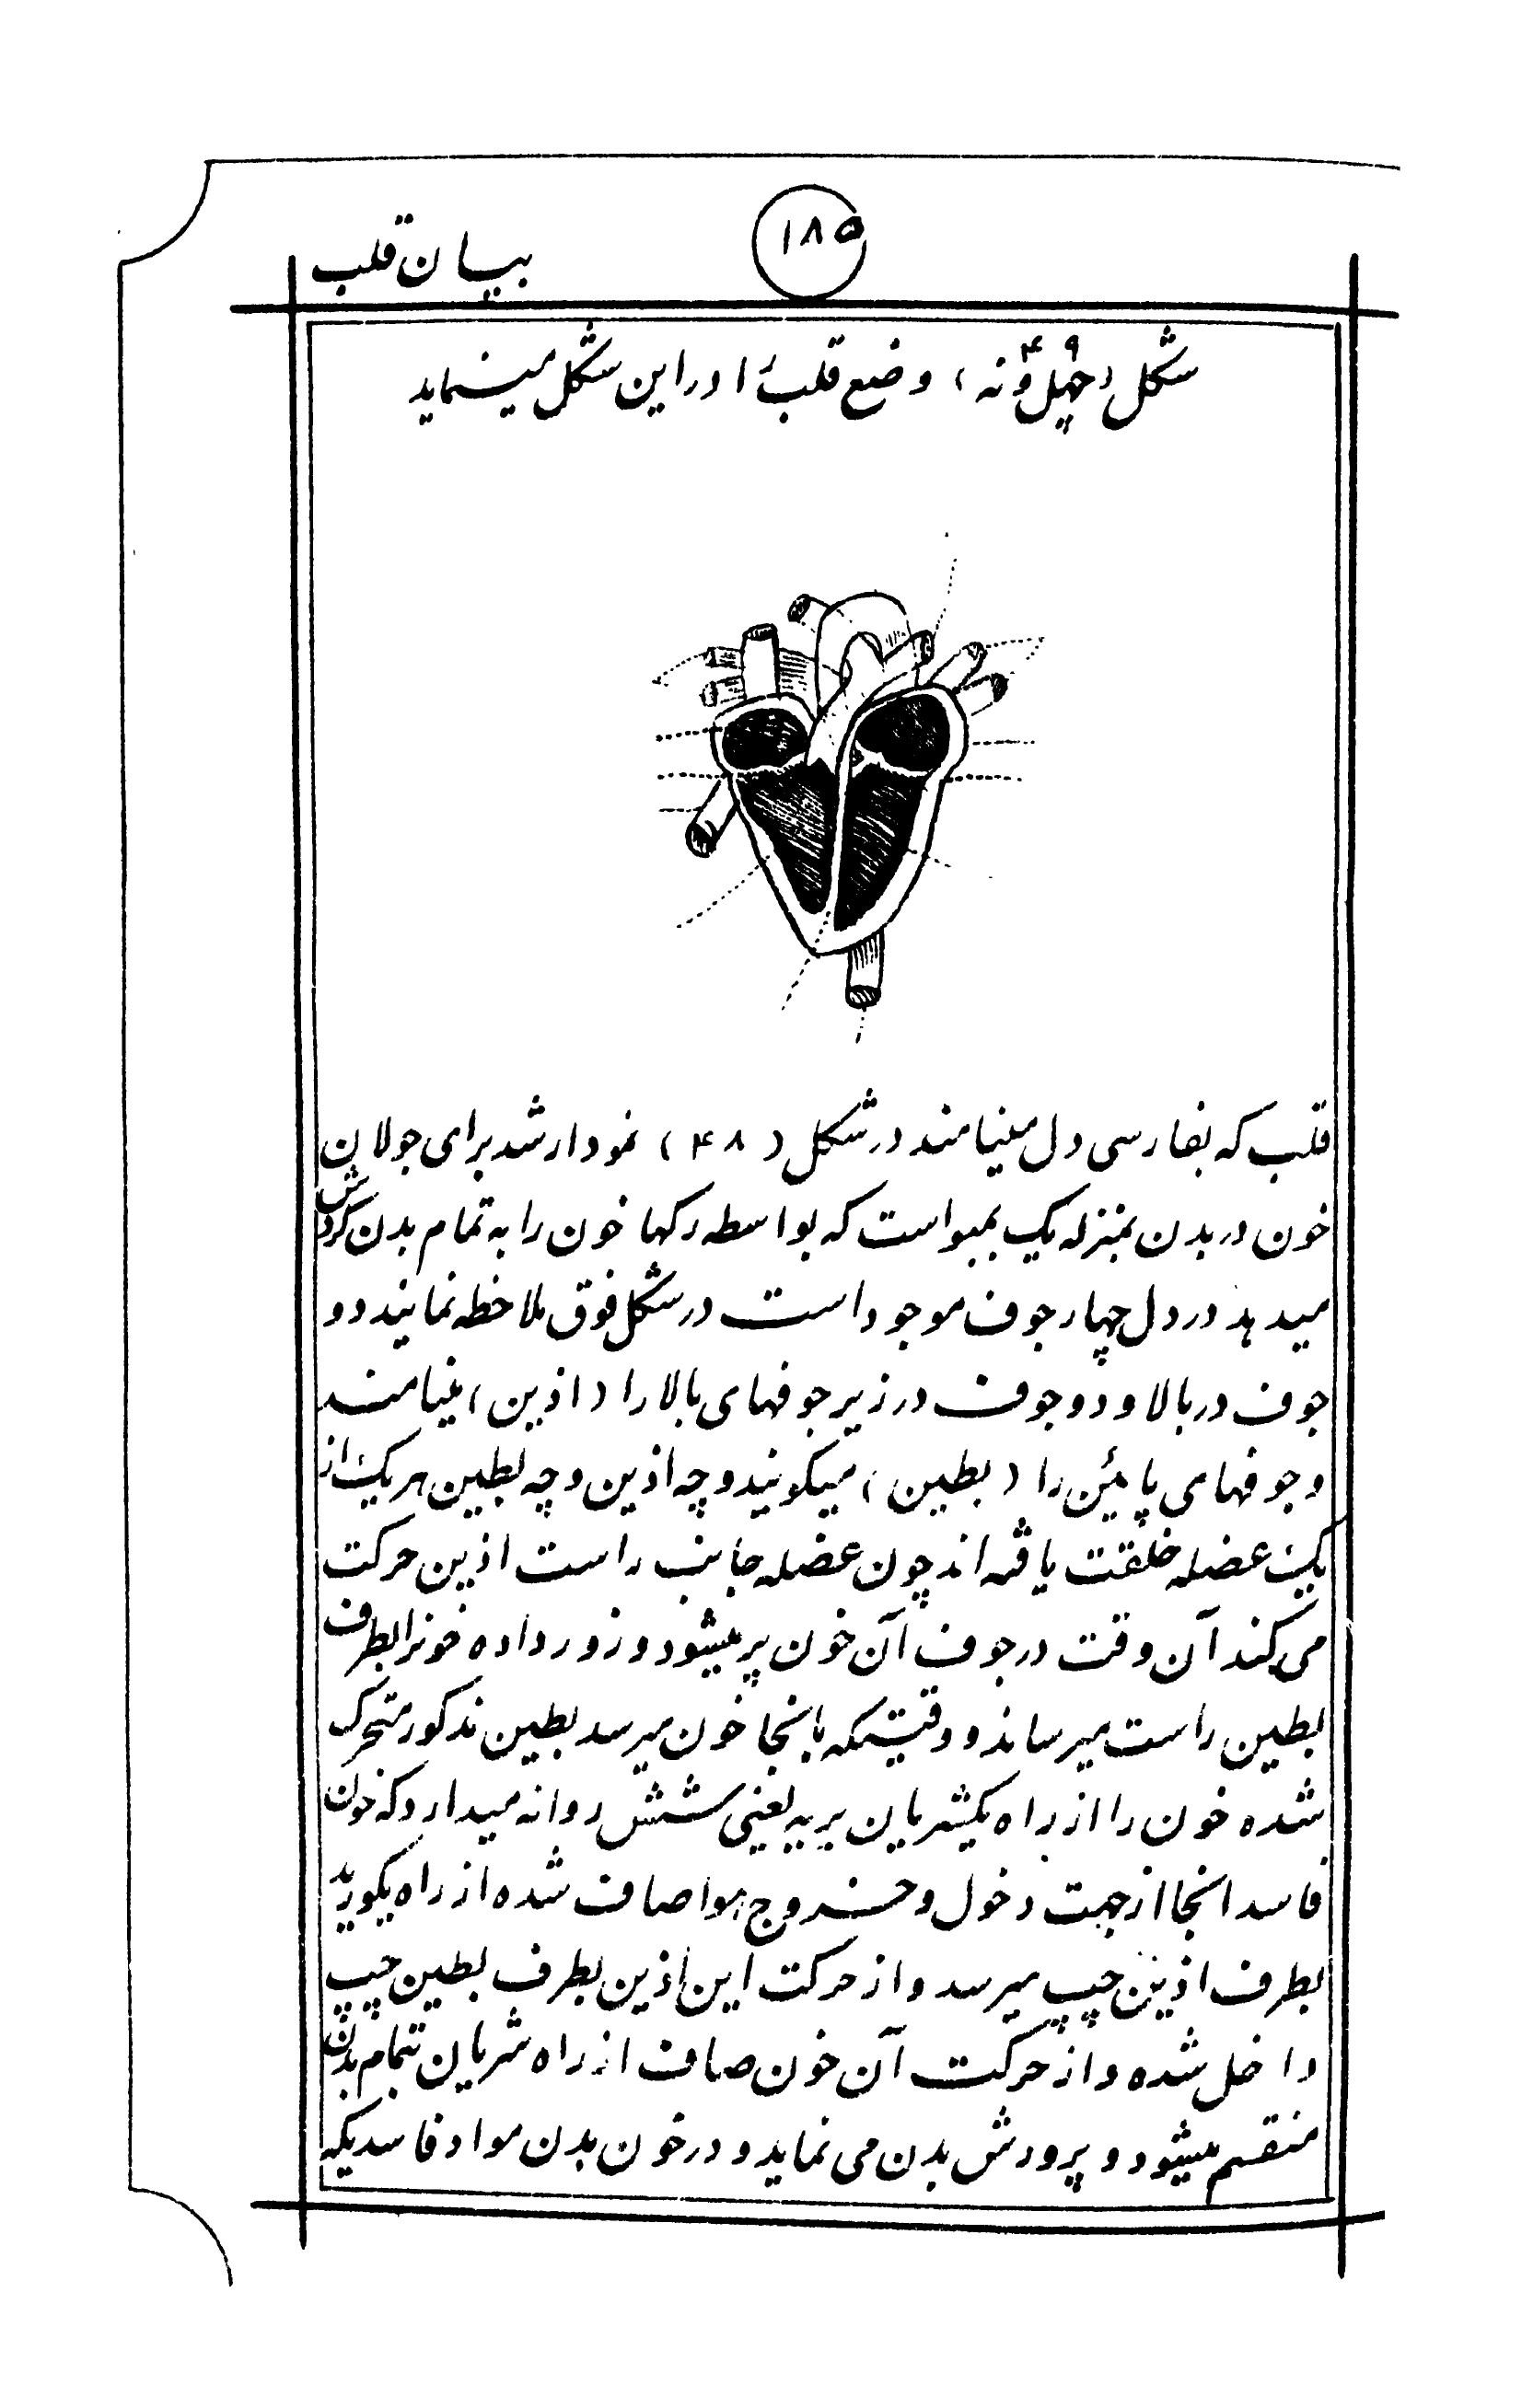 ۱۸۵
بیان قلب
شکل (چهل و نه ۴۹) وضع قلب را در این شکل مینماید
قلب که بفارسی دل مینامند در شکل (۴۸) نمودار شد برای جولان
خون در بدن بمنزله یک بمبو است که بواسطه رکها خون را به تمام بدن گردش
میدهد در دل چهار جوف موجود است در شکل فوق ملاحظه نمائید دو
جوف در بالا و دو جوف در زیر جوفهای بالا را (اذین) مینامند
و جوفهای پائین را (بطین) میکویند و چه اذین و چه بطین هر یک از
یک عضله خلقت یافته اند چون عضله جانب راست اذین حرکت
می کند آن وقت در جوف آن خون پر میشود و زور داده خونرا بطرف
بطین راست میرساند و وقتیکه بانجا خون میرسد بطین مذکور متحرک
شده خون را از راه یکشریان بریه یعنی شش روانه میدارد که خون
فاسد انجا از جهت دخول و خروج هوا صاف شده از راه یکورید
بطرف اذین چپ میرسد و از حرکت این اذین بطرف بطین چپ
داخل شده و از حرکت آن خون صاف از راه شریان بتمام بدن
منقسم میشود و پرورش بدن می نماید و در خون بدن مواد فاسدیکه